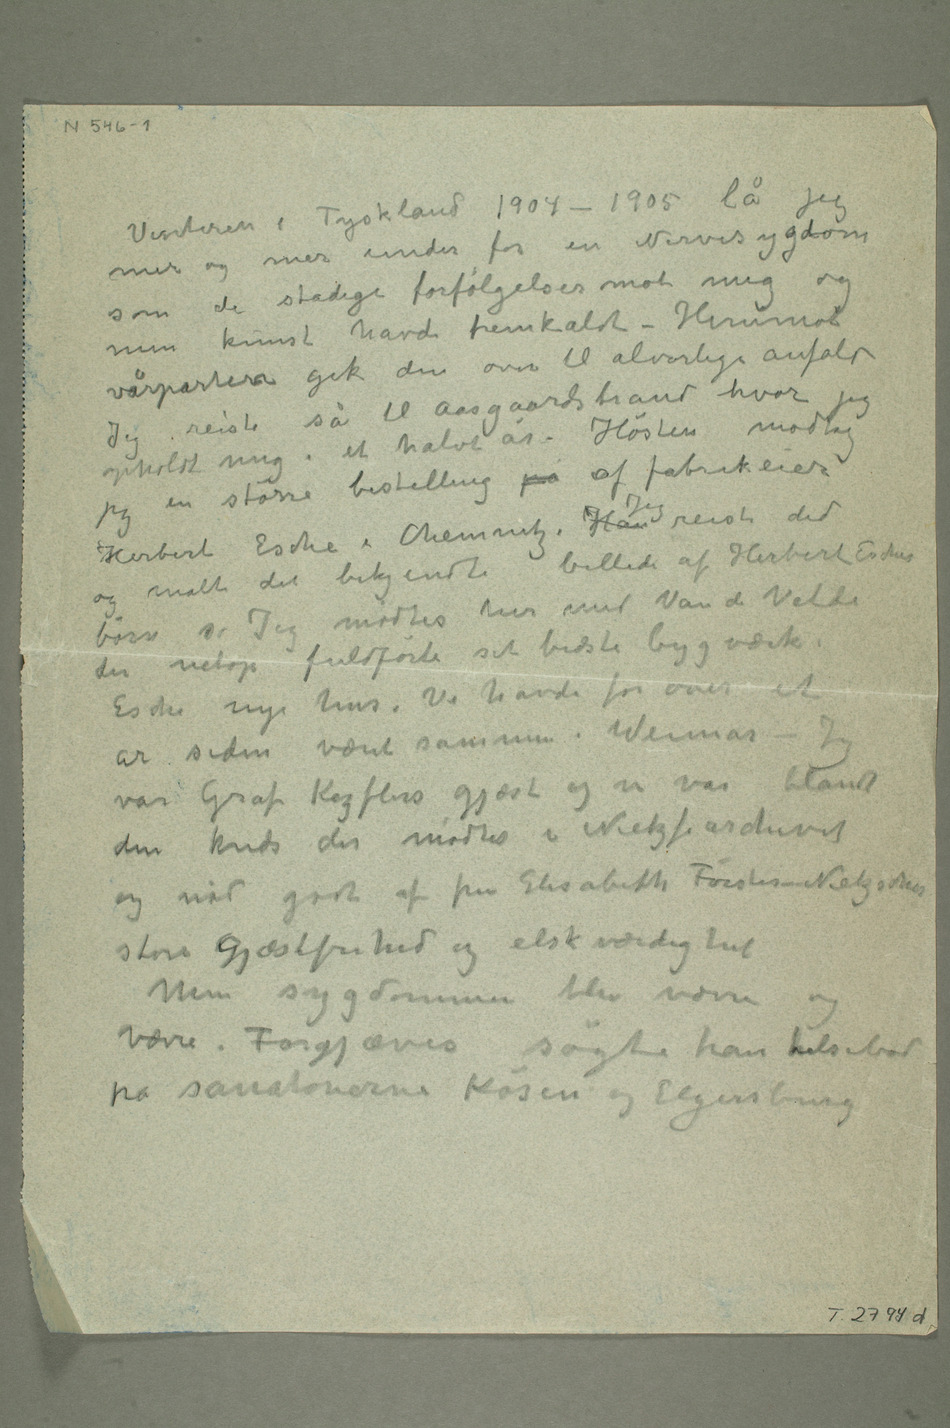 N 546-1
Vinteren i Tyskland 1904 – 1905 lå jeg
mer og mer under for en Nervesygdom
som de stadige forfölgelser mot mig og
min kunst havde fremkaldt – Henimot
vårparten gik den over til alvorlige anfald
Jeg reiste så til Aasgaardstrand hvor jeg
opholdt mig i et halvt år. Hösten modtog
jeg en större bestilling på af fabrikeier
Herbert Esche i Chemnitz. Han Jeg reiste did
og malte det bekjendte billede af Herbert Esches
börn Jeg mödtes her med Van de Velde
der netop fuldförte sit bedste bygværk.
Esche nye hus. Vi havde for over et
år siden været sammen i Weimar – Jeg
var Graf Kezflers gjæst og vi var blandt
den kreds der mödtes i Nietzschearchivet
og nöd godt af fru Elisabeth Förster-Nietzsches
store Gjæstfrihed og elskværdighet
Min sygdommen blev værre og
værre. Forgjæves sögte han helsebod
på sanatorierne Kösen og Elgersburg
T. 2794 d